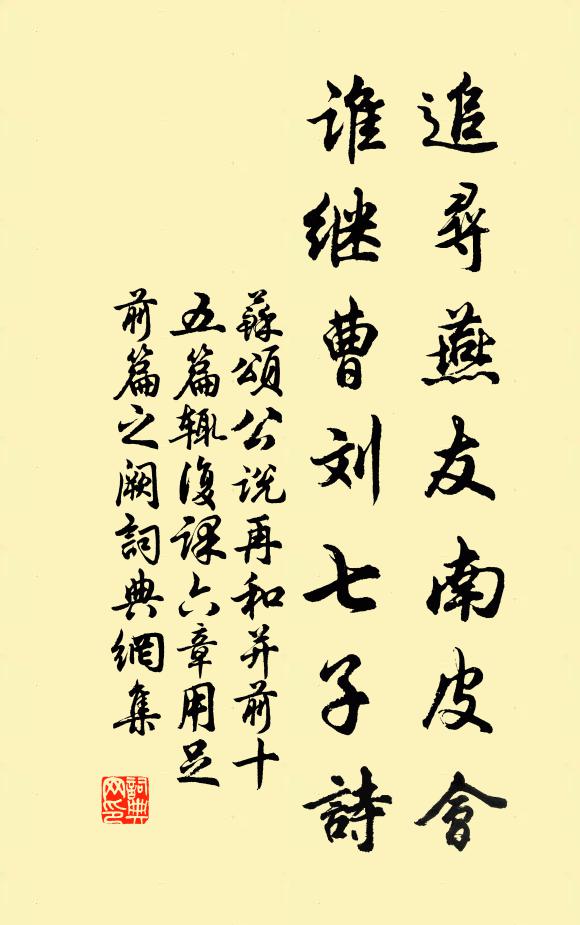 追尋燕友南皮會
谁继曹刘七子詩
蘇頌公说再和并前十
五篇辄復课六章用足
前篇之阙詞典網集
詞典网印